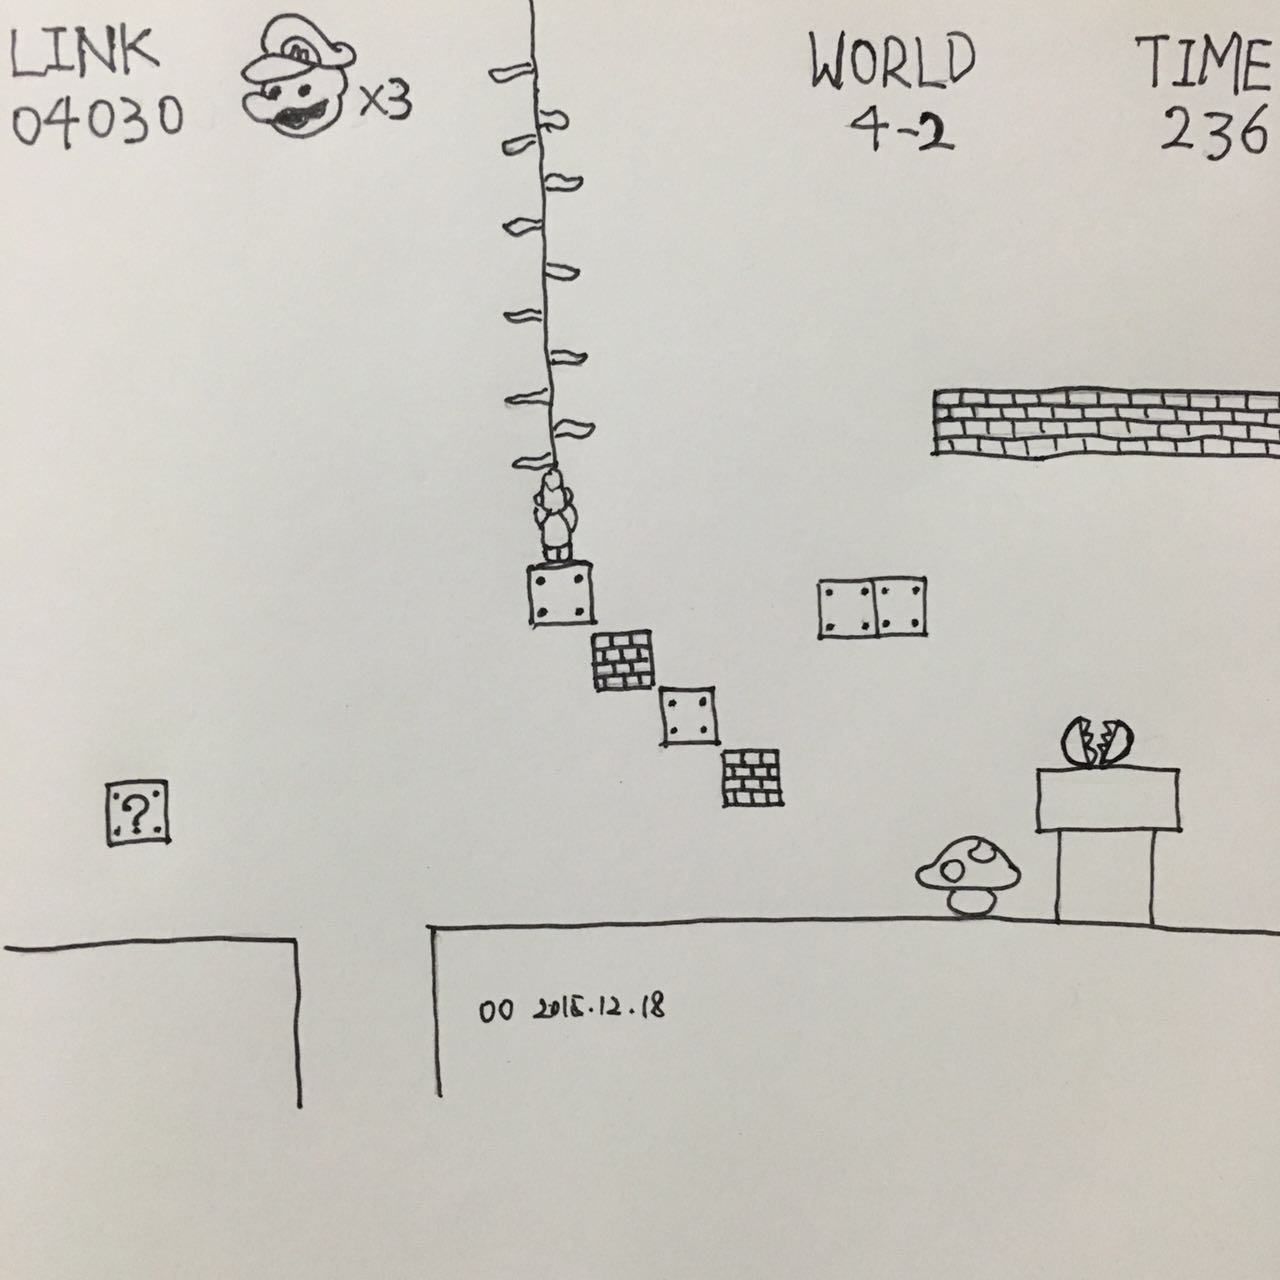 LINK
04030
M
x3
WORLD
4-2
TIME
236
?
00 2015.12.18